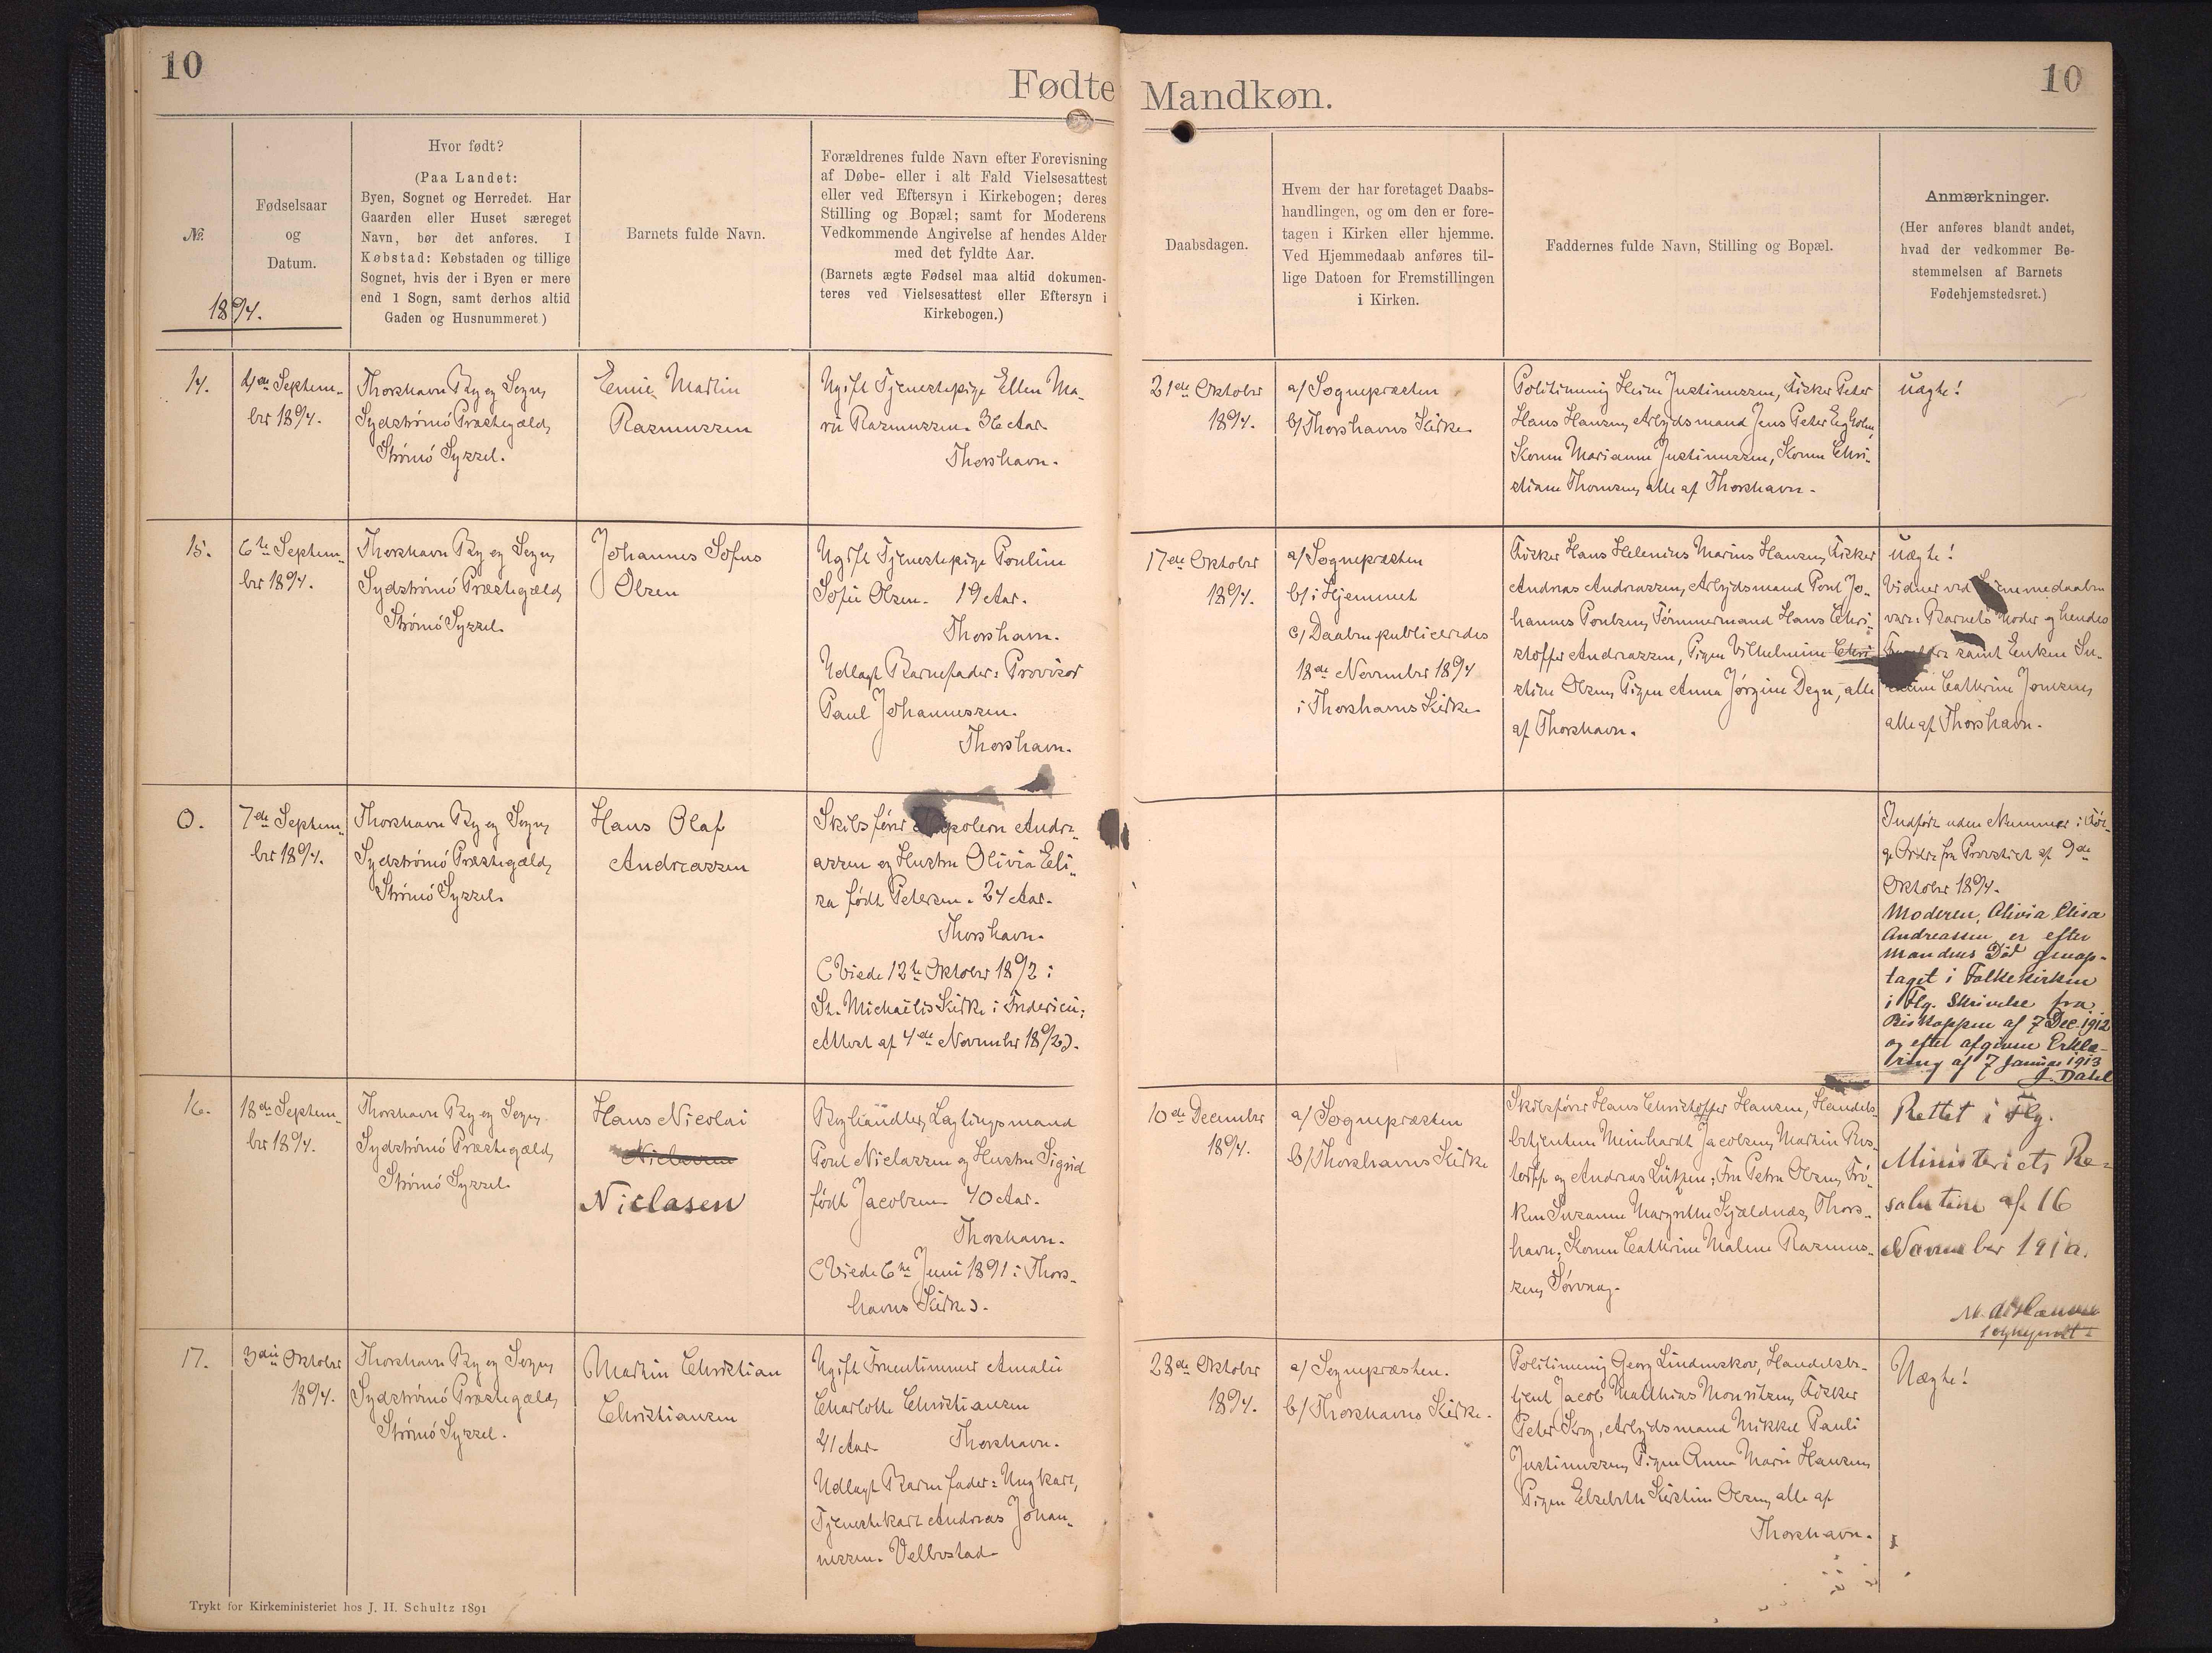 10
Fødte
Mandkøn.
10
№
1894.
Fødselsaar
og
Datum.
Hvor født?
(Paa Landet:
Byen, Sognet og Herredet. Har
Gaarden eller Huset særeget
Navn, bør det anføres. I
Købstad: Købstaden og tillige
Sognet, hvis der i Byen er mere
end 1 Sogn, samt derhos altid
Gaden og Husnummeret)
Barnets fulde Navn.
Forældrenes fulde Navn efter Forevisning
af Døbe- eller i alt Fald Vielsesattest
eller ved Eftersyn i Kirkebogen; deres
Stilling og Bopæl; samt for Moderens
Vedkommende Angivelse af hendes Alder
med det fyldte Aar.
(Barnets ægte Fødsel maa altid dokumen-
teres ved Vielsesattest eller Eftersyn i
Kirkebogen.)
Daabsdagen.
Hvem der har foretaget Daabs-
handlingen, og om den er fore-
tagen i Kirken eller hjemme.
Ved Hjemmedaab anføres til-
lige Datoen for Fremstillingen
i Kirken.
Faddernes fulde Navn, Stilling og Bopæl.
Anmærkninger.
(Her anføres blandt andet,
hvad der vedkommer Be-
stemmelsen af Barnets
Fødehjemstedsret.)
14.
4de Septem-
ber 1894.
Thorshavn By og Sogn,
Sydstrømø Præstegæld,
Strømø Syssel.
Emil Martin
Rasmussen
Ugift Tjenestepige Ellen Ma-
rie Rasmussen. 36 Aar.
Thorshavn.
21de Oktober
1894.
a/ Sognepræsten
b/ Thorshavns Kirke
Politimand Heine Justinussen, Fisker Peter
Hans Hansen, Arbejdsmand Jens Peter Egholm,
Konen Marianne Justinussen, Konen Chri-
stiane Thomsen, alle af Thorshavn.
uægte!
15.
6te Septem-
ber 1894.
Thorshavn By og Sogn,
Sydstrømø Præstegæld,
Strømø Syssel.
Johannes Sofus
Olsen
Ugift Tjenestepige Pouline
Sofie Olsen. 19 Aar.
Thorshavn.
Udlagt Barnefader: Provisor
Paul Johannessen.
Thorshavn.
17de Oktober
1894.
a/ Sognepræsten
b/ i Hjemmet
c/ Daaben publiceredes
18de November 1894
i Thorshavns Kirke
Fisker Hans Helenius Marius Hansen, Fisker
Andreas Andreassen, Arbejdsmand Poul Jo-
hannes Poulsen, Tømmermand Hans Chri-
stoffer Andreassen, Pigen Vilhelmine Chri-
stine Olsen, Pigen Anna Jørgine Degn, alle
af Thorshavn.
uægte!
Vidner ved Hjemmedaaben
vare: Barnets Moder og hendes
samt Enken Su-
Cathrine Joensen,
alle af Thorshavn.
O.
7de Septem-
ber 1894.
Thorshavn By og Sogn,
Sydstrømø Præstegæld,
Strømø Syssel.
Hans Olaf
Andreassen
Skibsfører Napoleon Andre-
assen og Hustru Olivia Eli-
sa født Petersen. 24 Aar.
Thorshavn.
(Viede 12te Oktober 1892 i
St. Michaelis Kirke i Fredericia;
Attest af 4de November 1892).
Indført uden Nummer i Føl-
ge Ordre fra Provstiet af 9de
Oktober 1894.
Moderen, Olivia Elisa
Andreassen er efter
Mandens Død genop-
taget i Folkekirken
i Flg. Skrivelse fra
Biskoppen af 7 Dec. 1912
og efter afgiven Erklæ-
ring af 7 Januar 1913
J. Dahl
16.
18de Septem-
ber 1894.
Thorshavn By og Sogn,
Sydstrømø Præstegæld,
Strømø Syssel.
Hans Nicolai
Niclasen
Boghandler, Lagtingsmand
Poul Niclassen og Hustru Sigrid
født Jacobsen. 40 Aar.
Thorshavn.
(Viede 6te Juni 1891 i Thors-
havns Kirke).
10de December
1894.
a/ Sognepræsten
b/ Thorshavns Kirke
Skibsfører Hans Christoffer Hansen, Handels-
betjentene Meinhardt Jacobsen, Martin Res-
torff og Andreas Lützen; Fru Petra Olsen, Frø-
ken Susanne Margrethe Kjældnæs, Thors-
havn; Konen Cathrine Malene Rasmus-
sen, Sørvaag.
Rettet i Flg.
Ministeriets Re-
solution af 16
November 1910.
17.
3die Oktober
1894.
Thorshavn By og Sogn,
Sydstrømø Præstegæld,
Strømø Syssel.
Martin Christian
Christiansen
Ugift Fruentimmer Amalie
Charlotte Christiansen
41 Aar. Thorshavn.
Udlagt Barnefader: Ungkarl,
Tjenestekarl Andreas Johan-
nessen. Velbestad
28de Oktober
1894.
a/ Sognepræsten.
b/ Thorshavns Kirke.
Politimand Georg Lindenskov, Handelsbe-
tjent Jacob Matthias Mouritzen, Fisker
Peter Krog, Arbejdsmand Mikkel Pauli
Justinussen, Pigen Anna Marie Hansen,
Pigen Elsebeth Kirstine Olsen, alle af
Thorshavn.
Uægte!
Trykt for Kirkeministeriet hos J. H. Schultz 1891